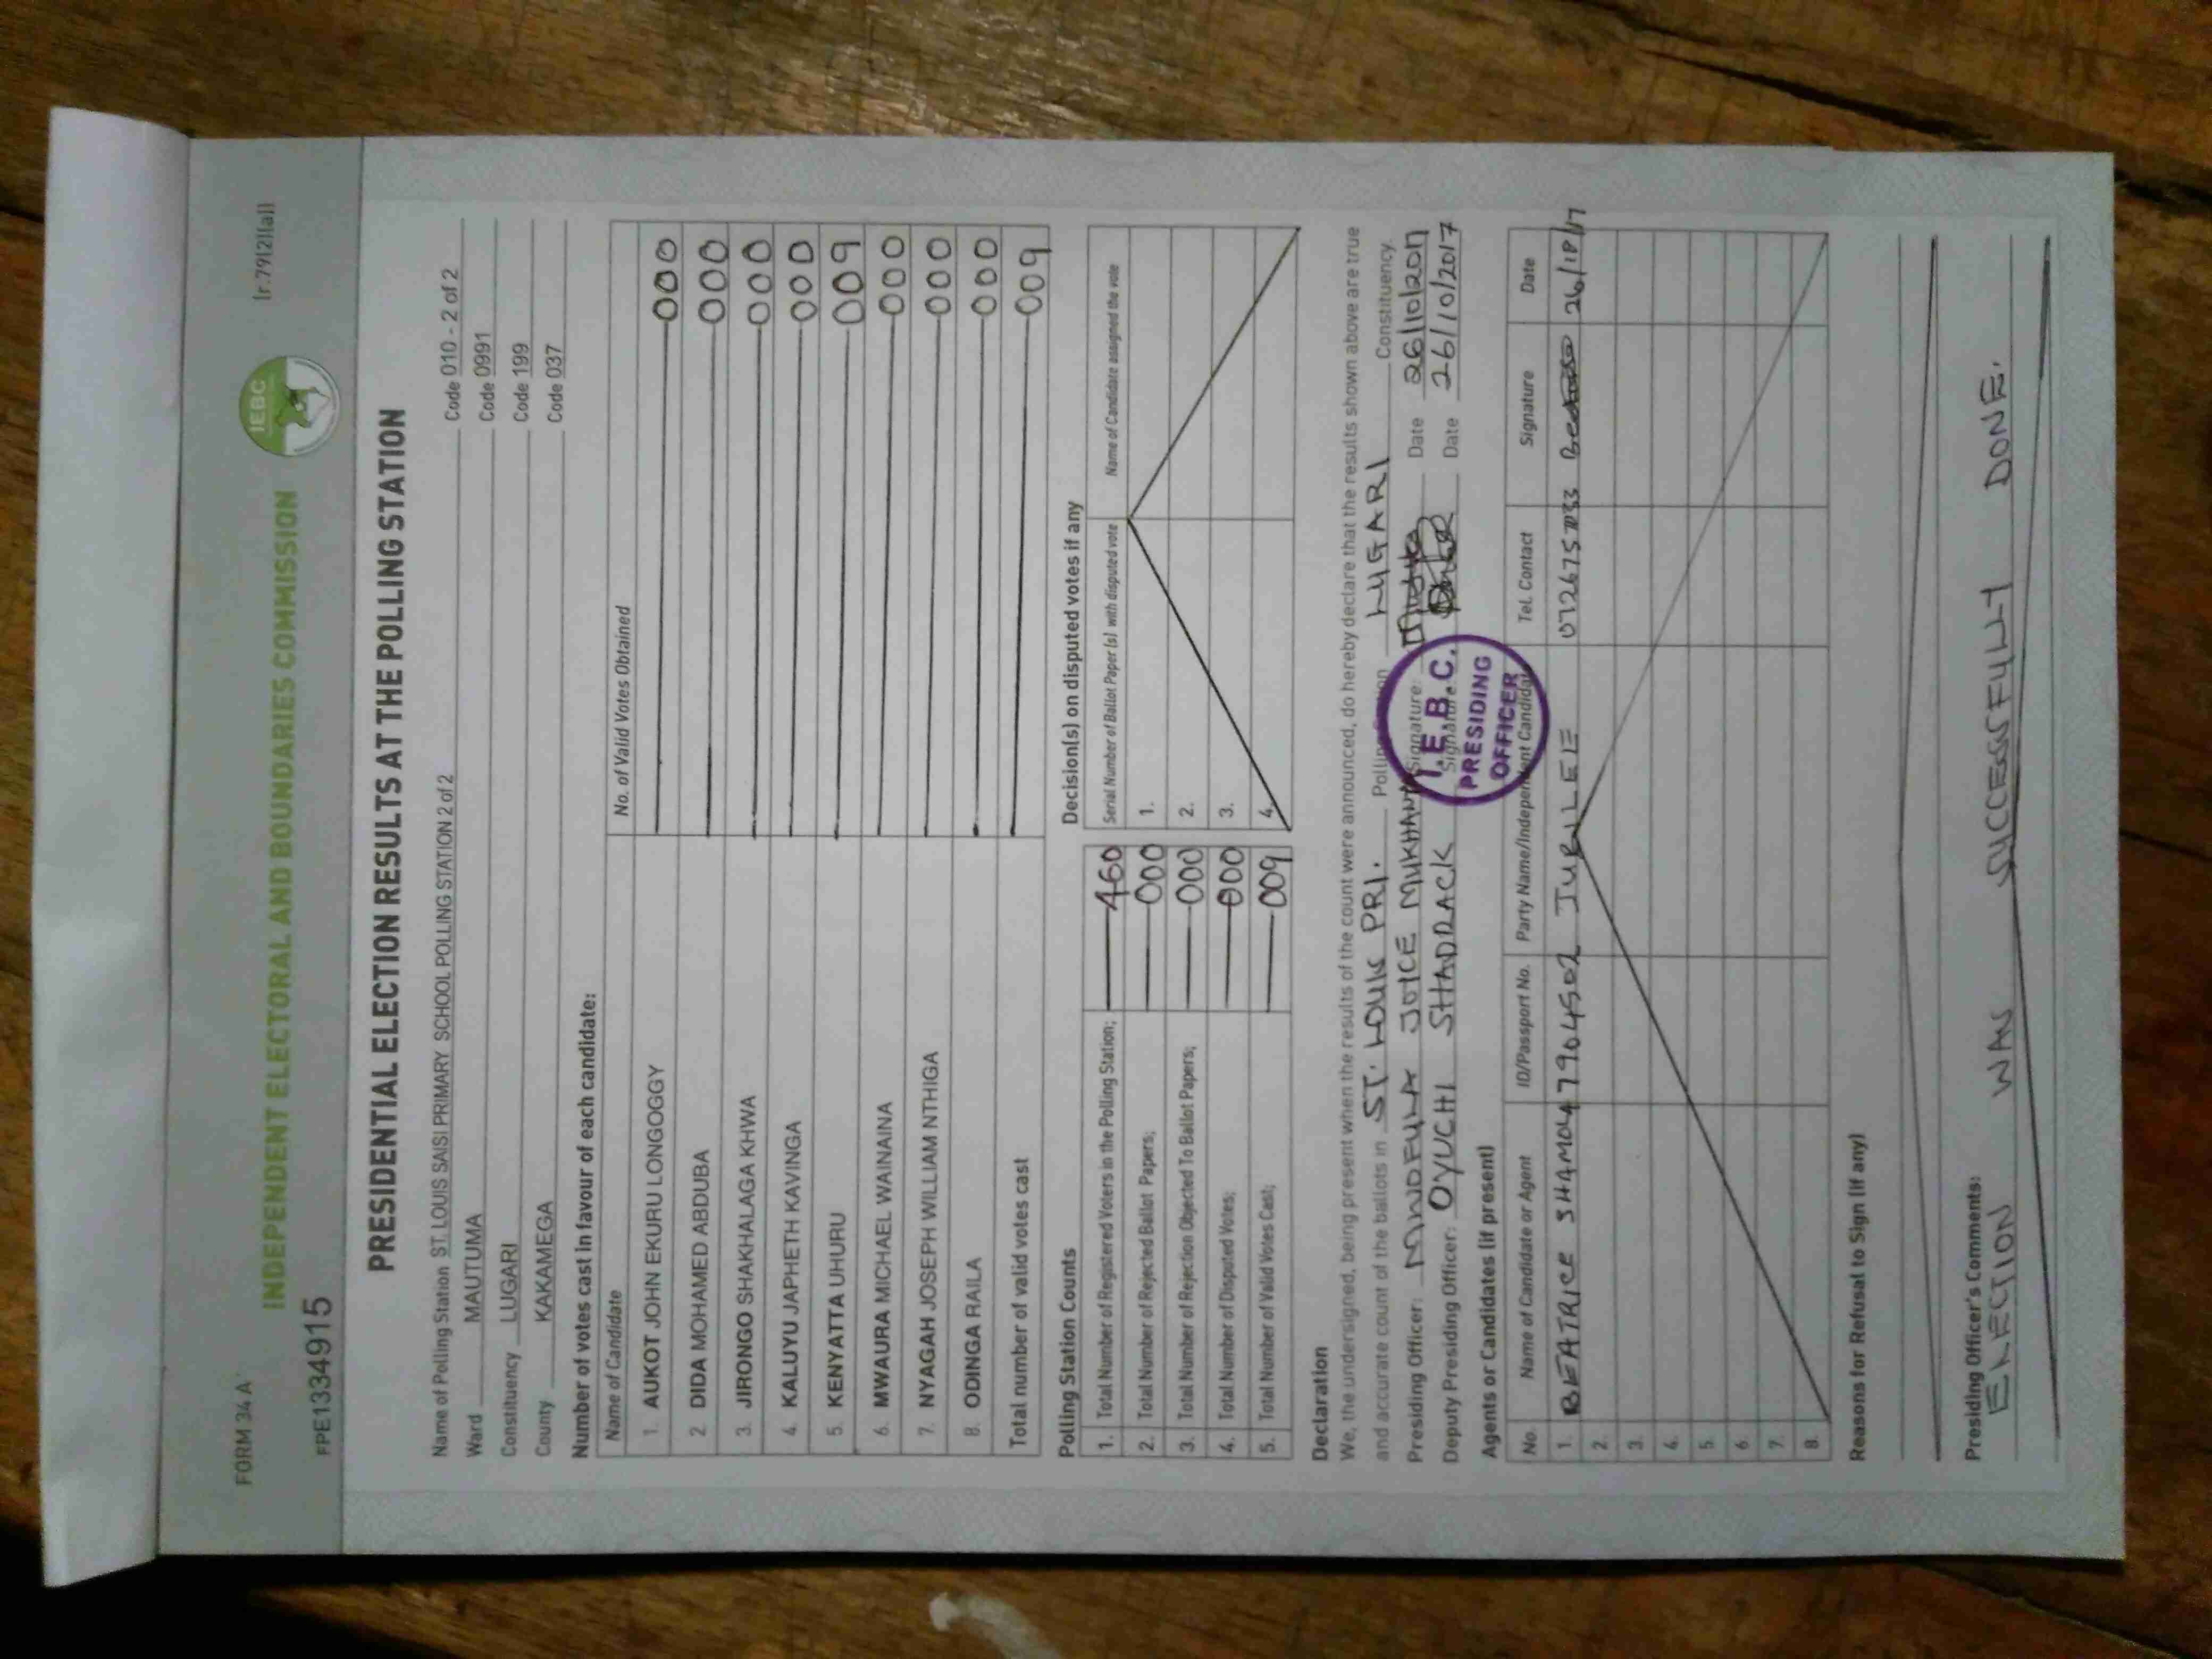 FORM 34 A
(r.79(2)(a))
INDEPENDENT ELECTORAL AND BOUNDARIES COMMISSION
IEBC
FPE1334915
PRESIDENTIAL ELECTION RESULTS AT THE POLLING STATION
Name of Polling Station ST. LOUIS SAISI PRIMARY SCHOOL POLLING STATION 2 of 2 Code 010 - 2 of 2
Ward MAUTUMA Code 0991
Constituency LUGARI Code 199
County KAKAMEGA Code 037
Number of votes cast in favour of each candidate:
Name of Candidate No. of Valid Votes Obtained
1. AUKOT JOHN EKURU LONGOGGY 000
2 DIDA MOHAMED ABDUBA 000
3. JIRONGO SHAKHALAGA KHWA 000
4. KALUYU JAPHETH KAVINGA 000
5. KENYATTA UHURU 009
6. MWAURA MICHAEL WAINAINA 000
7. NYAGAH JOSEPH WILLIAM NTHIGA 000
8. ODINGA RAILA 000
Total number of valid votes cast 009
Polling Station Counts
1. Total Number of Registered Voters in the Polling Station; 460
2. Total Number of Rejected Ballot Papers; 000
3. Total Number of Rejection Objected To Ballot Papers; 000
4. Total Number of Disputed Votes; 000
5. Total Number of Valid Votes Cast; 009
Decision(s) on disputed votes if any
Serial Number of Ballot Paper (s) with disputed vote Name of Candidate assigned the vote
1.
2.
3.
4.
Declaration
We, the undersigned, being present when the results of the count were announced, do hereby declare that the results shown above are true
and accurate count of the ballots in ST. LOUIS PRI. Polling Station LUGARI Constituency.
Presiding Officer: JOICE Signature: Date 26/10/2017
Deputy Presiding Officer: OYUCHI SHADRACK Signature: Date 26/10/2017
I.E.B.C.
PRESIDING
OFFICER
Agents or Candidates (if present)
No. Name of Candidate or Agent ID/Passport No. Party Name/Independent Candidate Tel. Contact Signature Date
1. BEATRICE JUBILEE 26/10/17
2.
3.
4.
5.
6
7.
8.
Reasons for Refusal to Sign (if any)
Presiding Officer's Comments:
ELECTION WAS SUCCESSFULLY DONE.